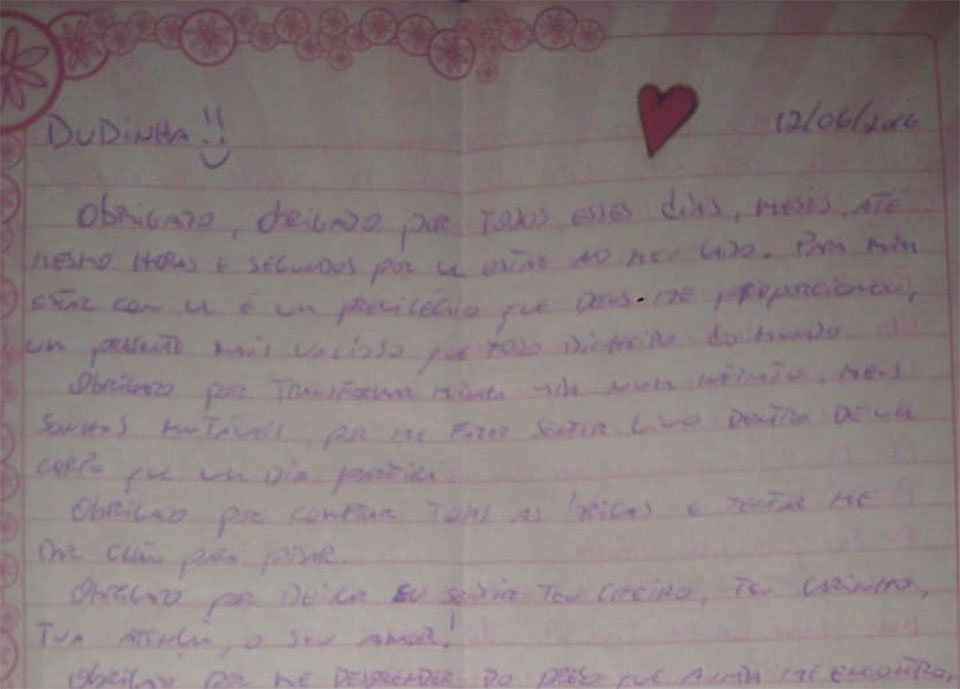 DUDINHA!!
12/06/2016
OBRIGADO, OBRIGADO por TODOS ESSES dias, MESES, ATÉ
MESMO HORAS E SEGUNDOS por vc ESTAR AO MEU LADO. PARA mim
ESTAR com vc é um PRIVILÉGIO que DEUS ME proporcionou,
um presente mais valioso que TODO DINHEIRO do mundo.
OBRIGADO por TRANSFORMAR minha num , MEUS
SONHOS , por ME FAZER SENTIR VIVO DENTRO
CORPO que um DIA partirá.
OBRIGADO por comprar TODAS AS brigas E TENTAR ME
DAR chão para pisar.
OBRIGADO por DEIXAR EU SENTIR TEU CHEIRO, TEU CARINHO,
TUA , O SEU AMOR!
OBRIGADO por ME DESPRENDER DO que AINDA ME ENCONTRO,